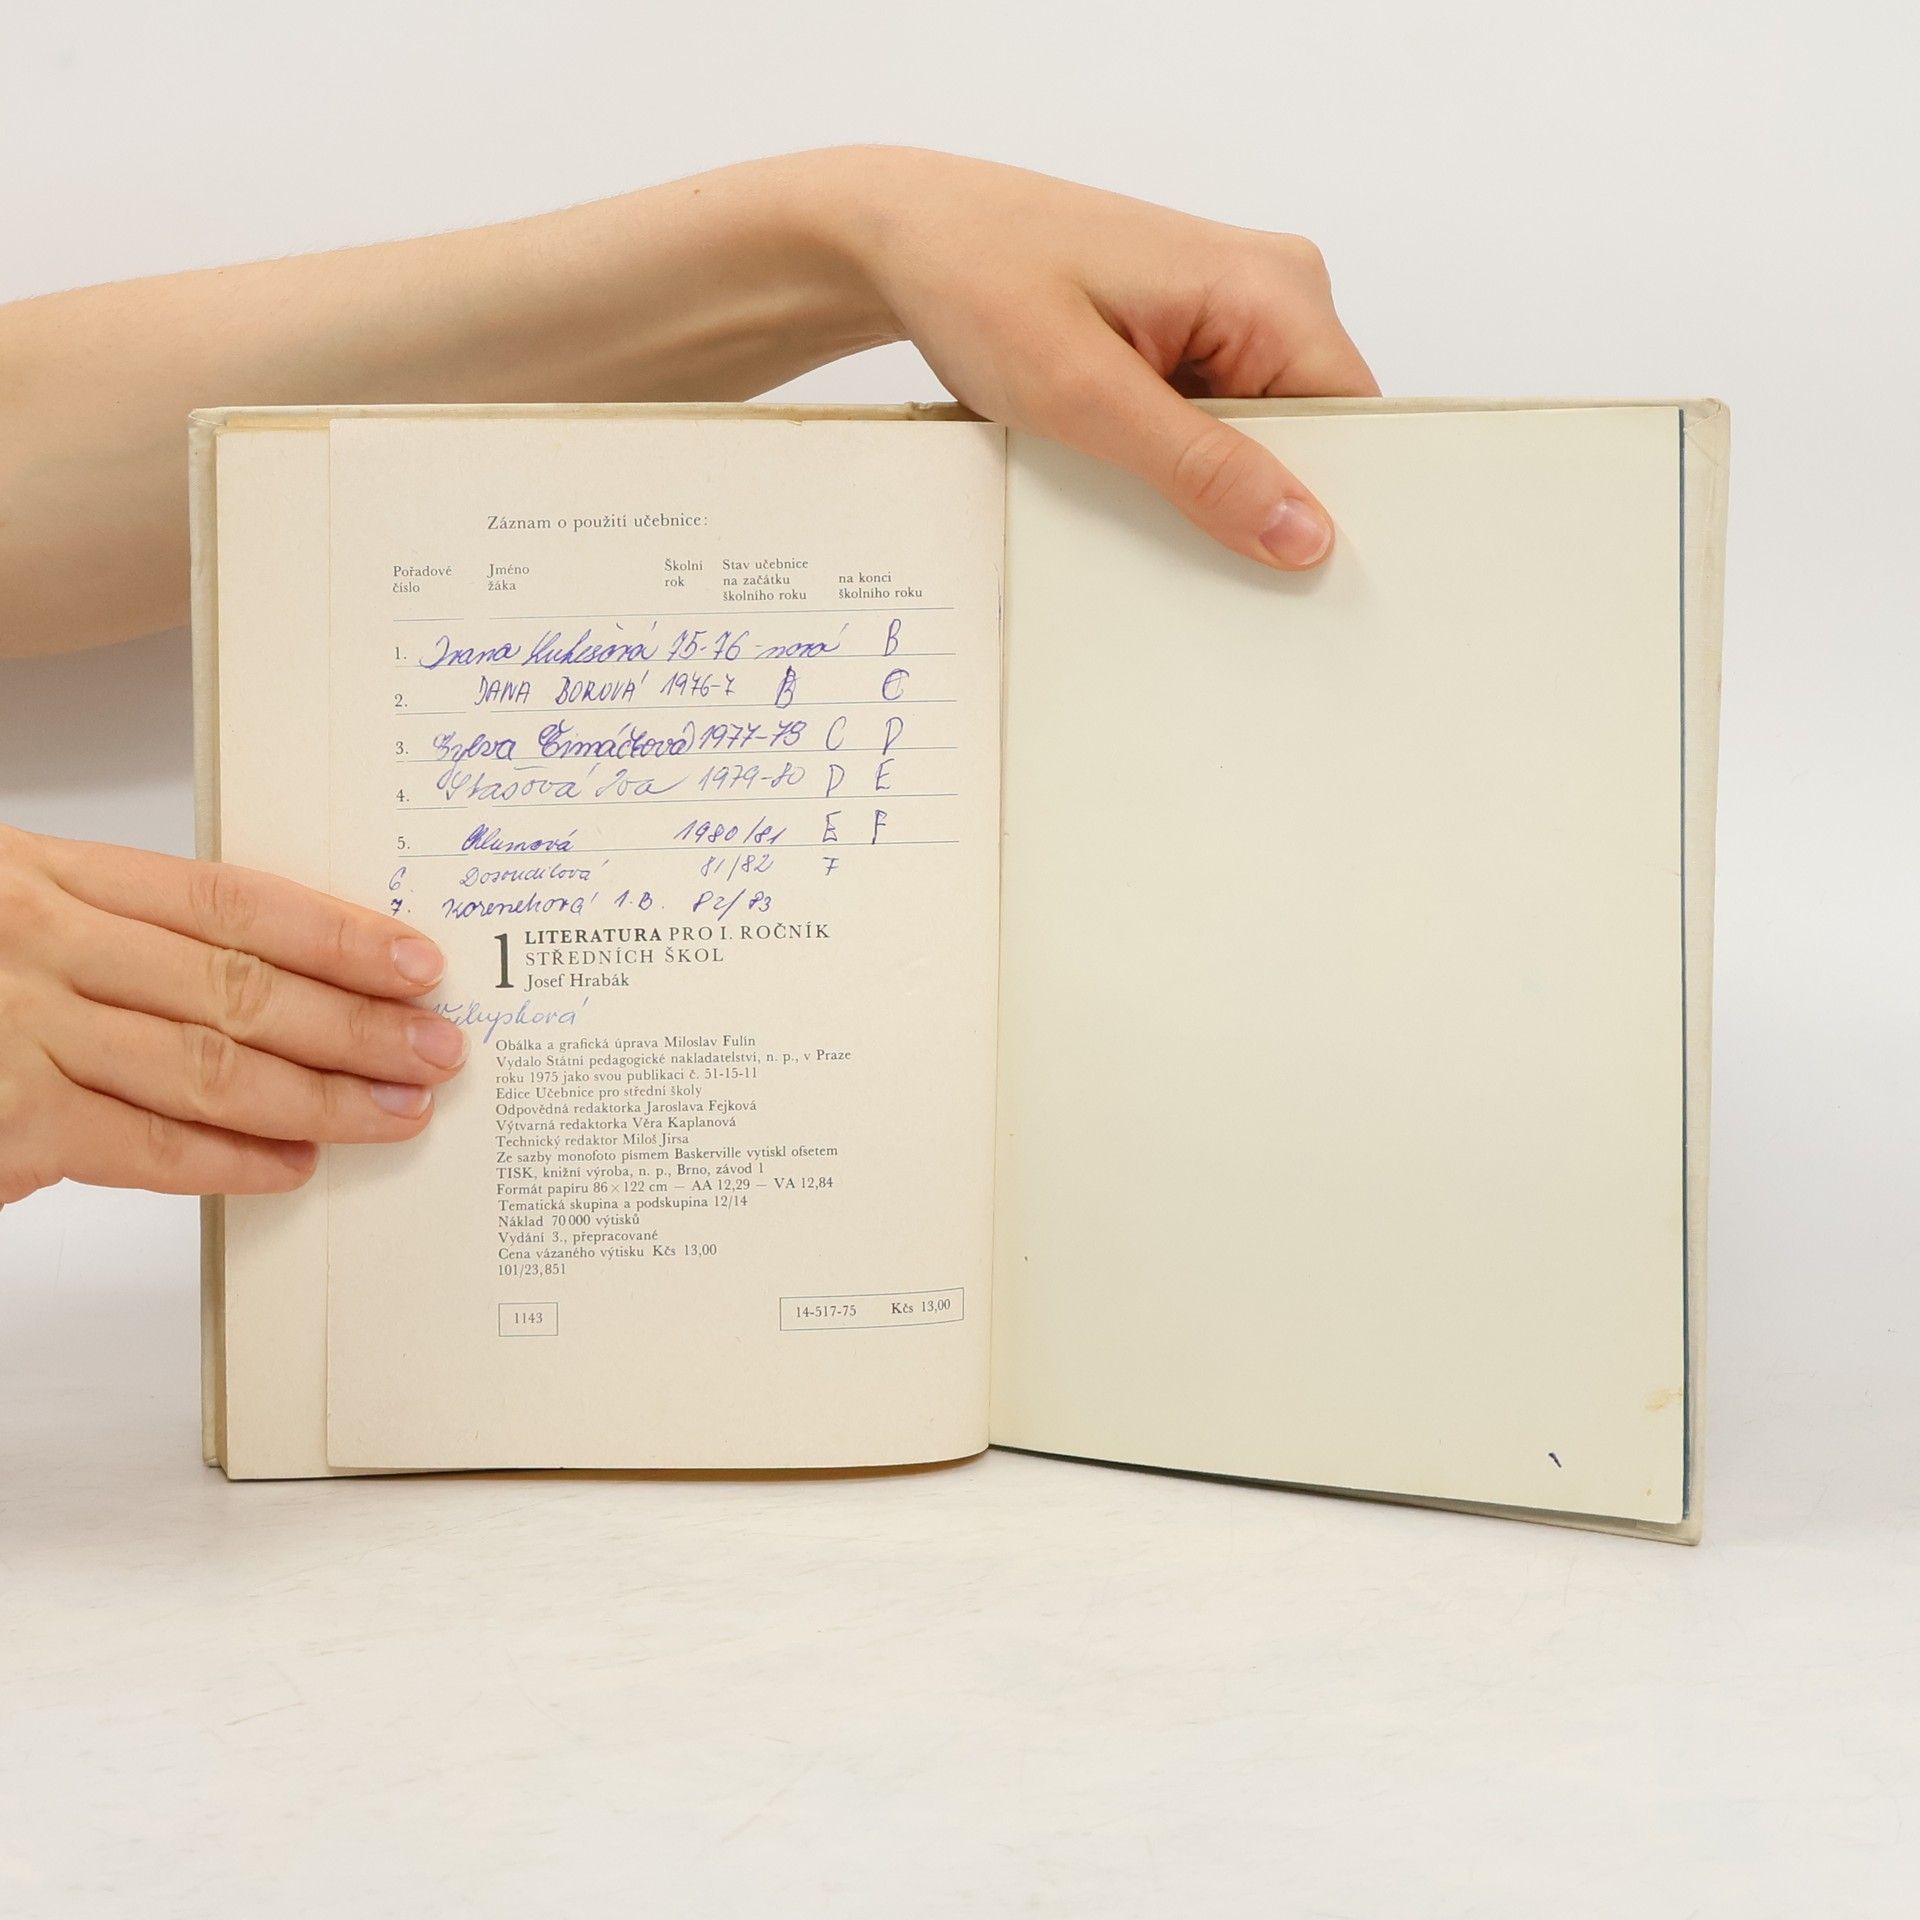 Záznam o použití učebnice:
Pořadové číslo
Jméno žáka
Školní rok
Stav učebnice na začátku školního roku
na konci školního roku
1. Ivana 75-76 nová B
2. DANA BOROVÁ 1976-7 B C
3. 1977-79 C D
4. Stašová Iva 1979-80 D E
5. Klumová 1980/81 E F
6. Dosoudilová 81/82 F
7. 1.B. 82/83
1 LITERATURA PRO I. ROČNÍK
STŘEDNÍCH ŠKOL
Josef Hrabák
Obálka a grafická úprava Miloslav Fulín
Vydalo Státní pedagogické nakladatelství, n. p., v Praze
roku 1975 jako svou publikaci č. 51-15-11
Edice Učebnice pro střední školy
Odpovědná redaktorka Jaroslava Fejková
Výtvarná redaktorka Věra Kaplanová
Technický redaktor Miloš Jirsa
Ze sazby monofoto písmem Baskerville vytiskl ofsetem
TISK, knižní výroba, n. p., Brno, závod 1
Formát papíru 86×122 cm — AA 12,29 — VA 12,84
Tematická skupina a podskupina 12/14
Náklad 70 000 výtisků
Vydání 3., přepracované
Cena vázaného výtisku Kčs 13,00
101/23,851
1143
14-517-75 Kčs 13,00